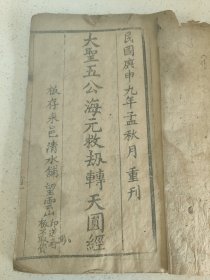 民國庚申九年孟秋月重刊
大聖五公海元救劫轉天圖經
板存永邑清水鋪望雲山
印送者
板不取資